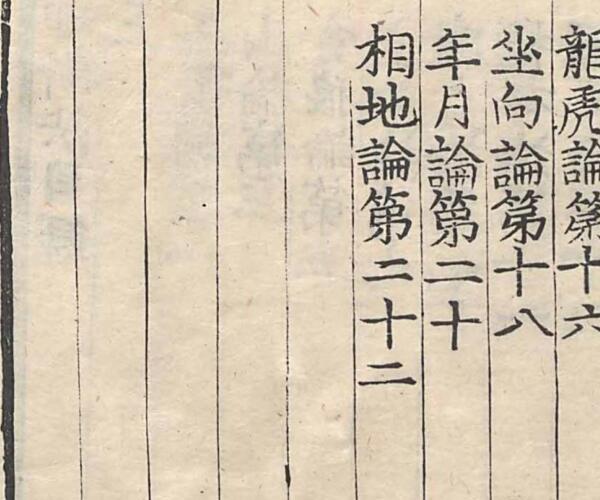 龍虎論第十六
坐向論第十八
年月論第二十
相地論第二十二